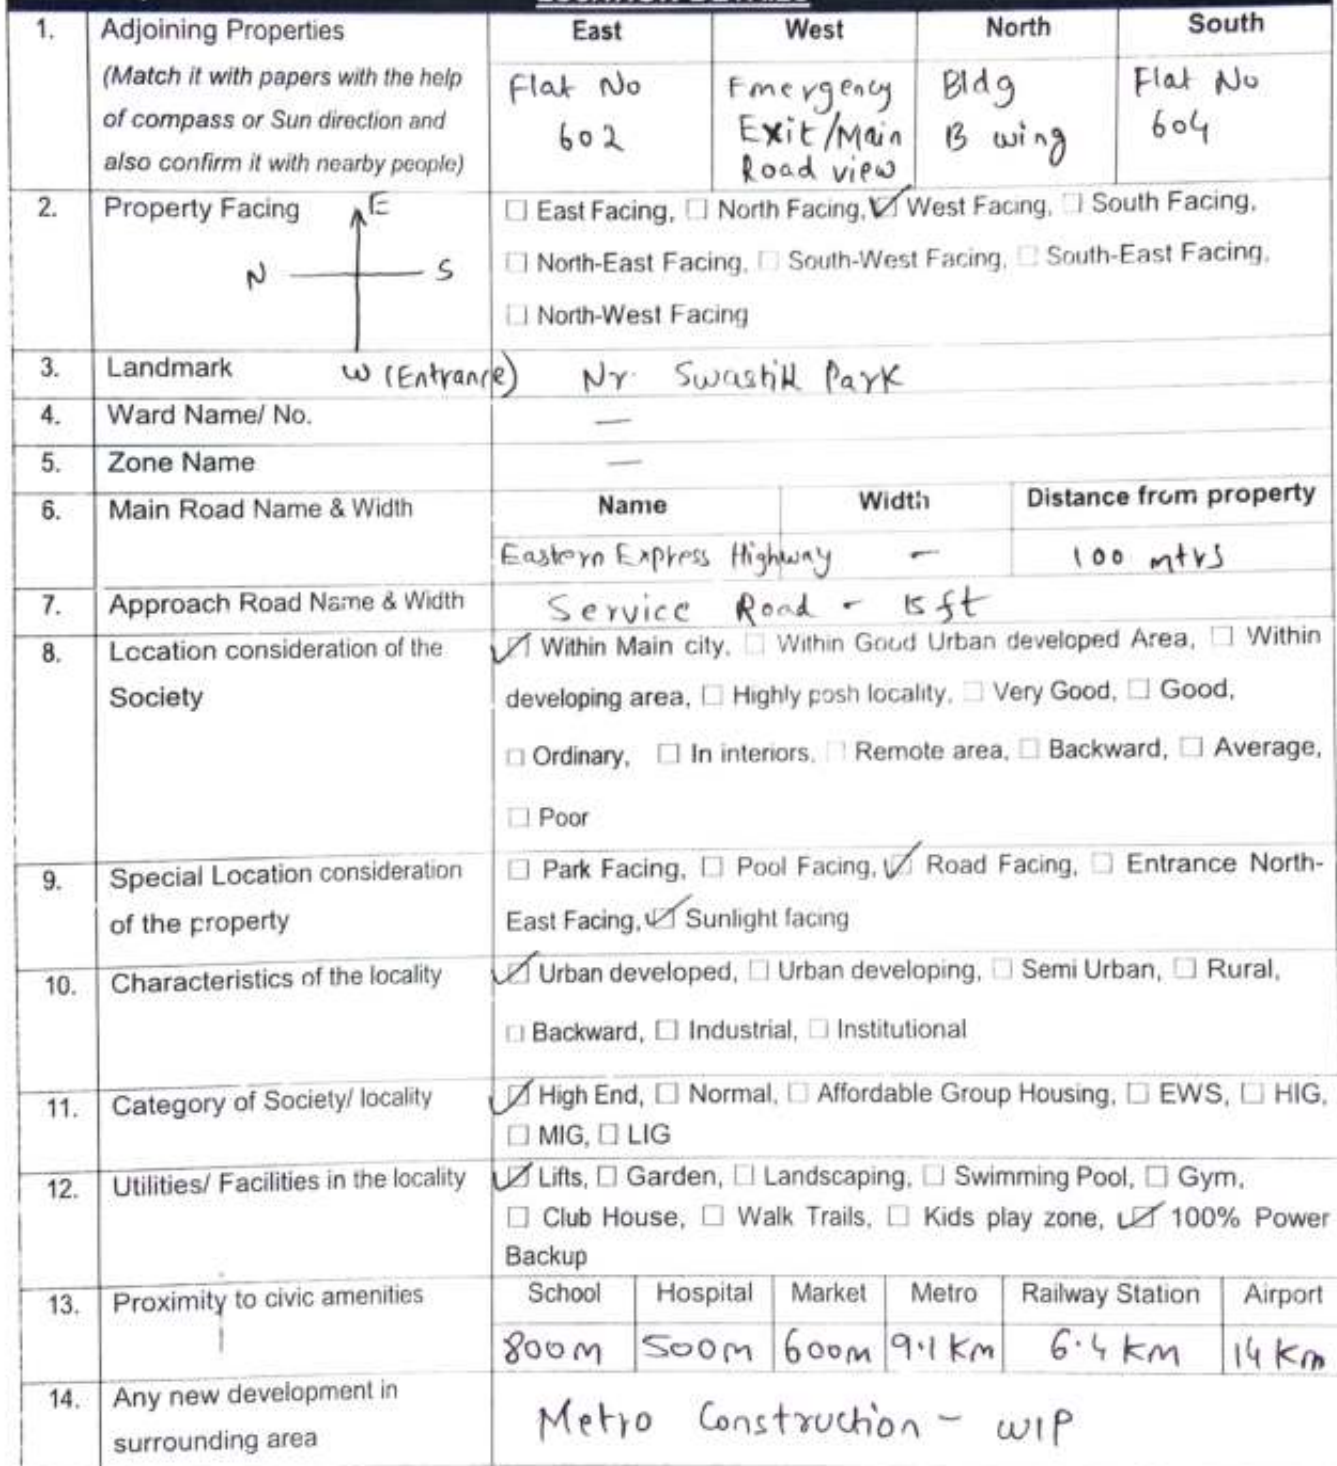 LOCATION DETAILS
1. Adjoining Properties East West North South
(Match it with papers with the help
of compass or Sun direction and
also confirm it with nearby people)
Flat No
602
Emergency
Exit/Main
Road view
Bldg
B wing
Flat No
604
2. Property Facing
E
N S
W (Entrance)
☐ East Facing, ☐ North Facing, ☑ West Facing, ☐ South Facing,
☐ North-East Facing, ☐ South-West Facing, ☐ South-East Facing,
☐ North-West Facing
3. Landmark Nr. Swastik Park
4. Ward Name/ No. —
5. Zone Name —
6. Main Road Name & Width Name Width Distance from property
Eastern Express Highway - 100 mtrs
7. Approach Road Name & Width Service Road - 15 ft
8. Location consideration of the
Society
☑ Within Main city, ☐ Within Good Urban developed Area, ☐ Within
developing area, ☐ Highly posh locality, ☐ Very Good, ☐ Good,
☐ Ordinary, ☐ In interiors, ☐ Remote area, ☐ Backward, ☐ Average,
☐ Poor
9. Special Location consideration
of the property
☐ Park Facing, ☐ Pool Facing, ☑ Road Facing, ☐ Entrance North-
East Facing, ☑ Sunlight facing
10. Characteristics of the locality
☑ Urban developed, ☐ Urban developing, ☐ Semi Urban, ☐ Rural,
☐ Backward, ☐ Industrial, ☐ Institutional
11. Category of Society/ locality
☑ High End, ☐ Normal, ☐ Affordable Group Housing, ☐ EWS, ☐ HIG,
☐ MIG, ☐ LIG
12. Utilities/ Facilities in the locality
☑ Lifts, ☐ Garden, ☐ Landscaping, ☐ Swimming Pool, ☐ Gym,
☐ Club House, ☐ Walk Trails, ☐ Kids play zone, ☑ 100% Power
Backup
13. Proximity to civic amenities School Hospital Market Metro Railway Station Airport
800m 500m 600m 9.1 Km 6.4 KM 14 Km
14. Any new development in
surrounding area
Metro Construction - WIP